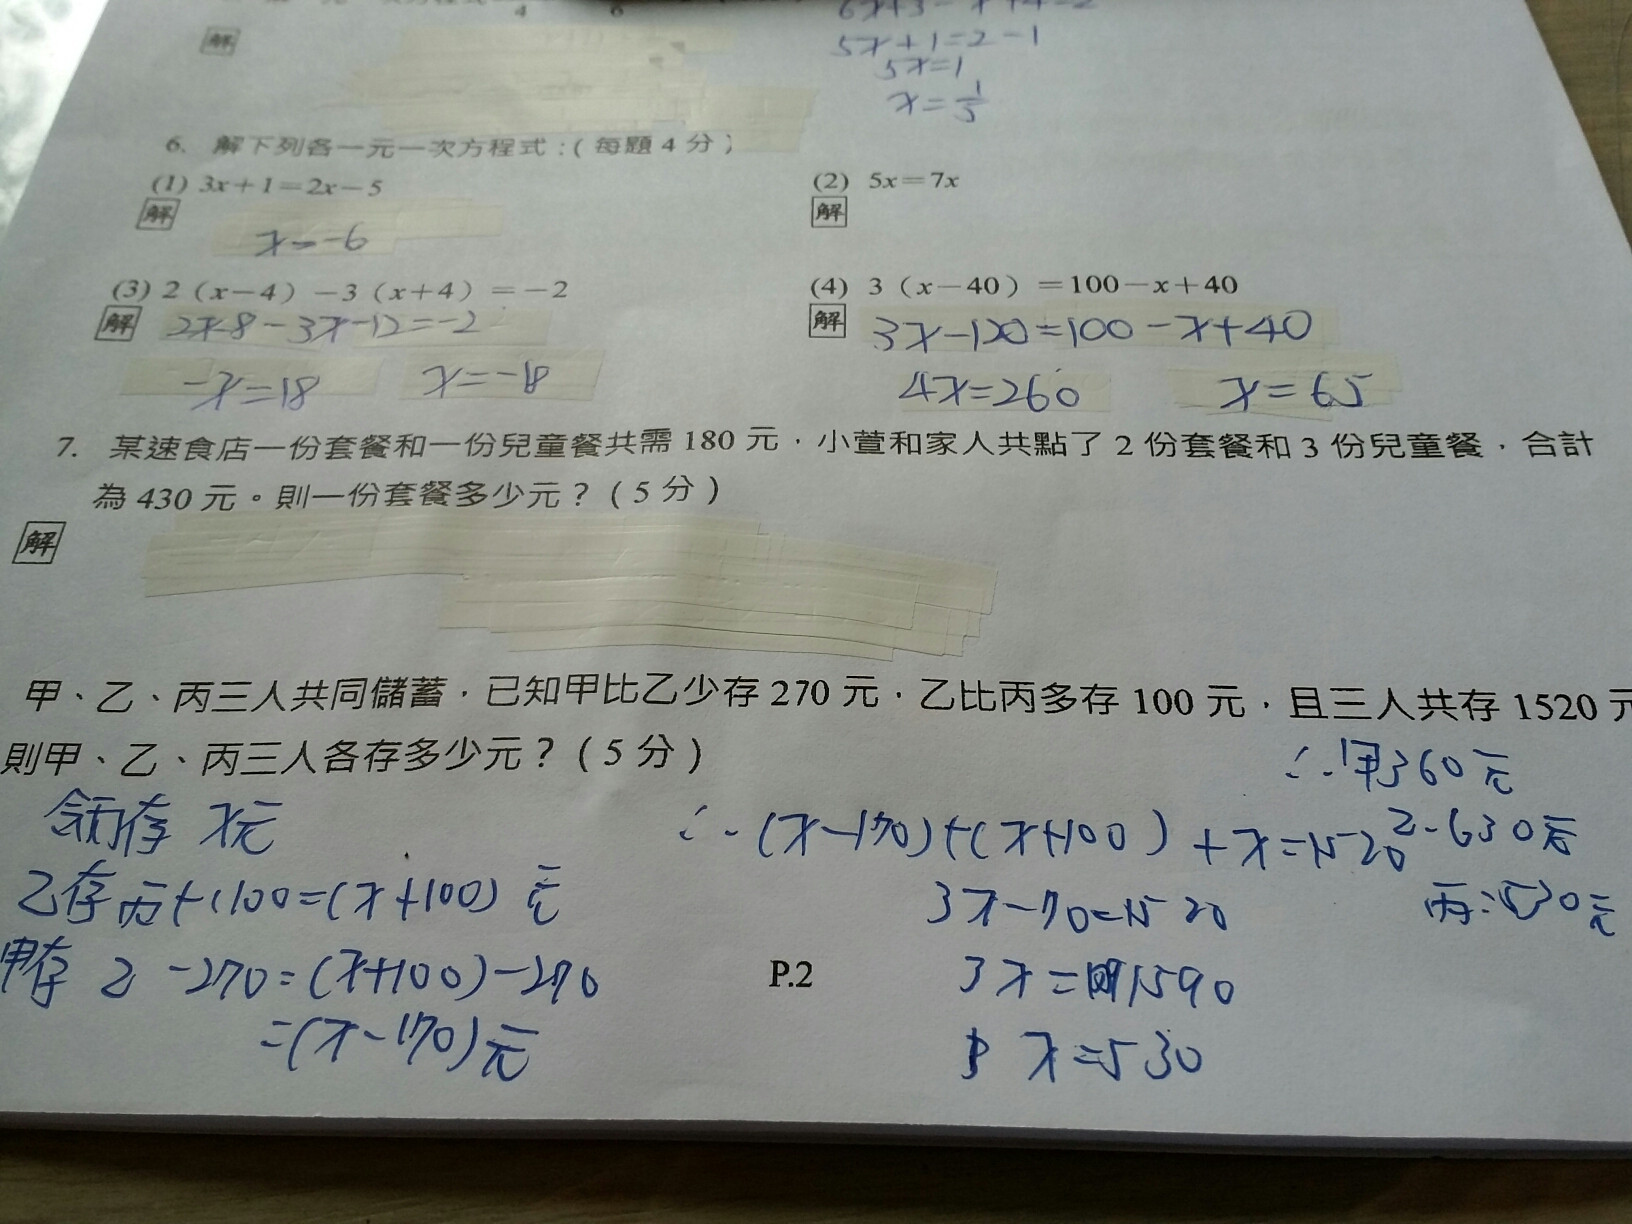 6x+3-x+4=2
5x+1=2-1
解
5x=1
x=1/5
6. 解下列各一元一次方程式：（每題4分）
(1) 3x+1=2x-5
(2) 5x=7x
解
解
x=-6
(3) 2（x-4）-3（x+4）=-2
(4) 3（x-40）=100-x+40
解 2x-8-3x-12=-2
解 3x-120=100-x+40
-x=18 x=-18
4x=260 x=65
7. 某速食店一份套餐和一份兒童餐共需180元，小萱和家人共點了2份套餐和3份兒童餐，合計
為430元。則一份套餐多少元？（5分）
解
甲、乙、丙三人共同儲蓄，已知甲比乙少存270元，乙比丙多存100元，且三人共存1520元
則甲、乙、丙三人各存多少元？（5分）
∴甲360元
令丙存 x元
∴(x-170)+(x+100)+x=1520
乙:630元
乙存丙+100=(x+100)元
3x-70=1520
丙:530元
甲存 乙-270=(x+100)-270
P.2
3x=1590
=(x-170)元
x=530